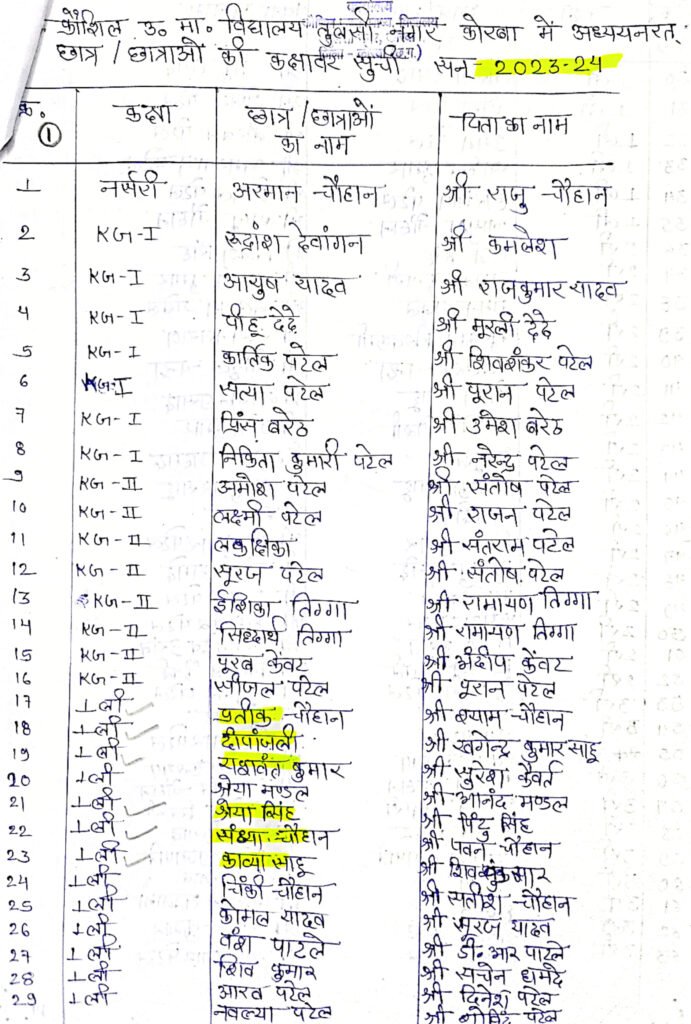 कौशिल उ. मा. विद्यालय तुलसी नगर कोरबा में अध्ययनरत्
छात्र / छात्राओं की कक्षावर सुची सन् 2023-24
क्र. कक्षा छात्र / छात्राओं का नाम पिता का नाम
①
1 नर्सरी अरमान चौहान श्री राजु चौहान
2 KG-I रूद्रांश देवांगन श्री कमलेश
3 KG-I आयुष यादव श्री राजकुमार यादव
4 KG-I पीहू देदे श्री मूरली देदे
5 KG-I कार्तिक पटेल श्री शिवशंकर पटेल
6 KG-I सत्या पटेल श्री पूरान पटेल
7 KG-I प्रिंस बरेठ श्री उमेश बरेठ
8 KG-I निकिता कुमारी पटेल श्री नरेन्द्र पटेल
9 KG-II अमोश पटेल श्री संतोष पटेल
10 KG-II लक्ष्मी पटेल श्री राजन पटेल
11 KG-II श्री संतराम पटेल
12 KG-II सूरज पटेल श्री संतोष पटेल
13 KG-II ईशिका तिग्गा श्री रामायण तिग्गा
14 KG-II सिध्दार्थ तिग्गा श्री रामायण तिग्गा
15 KG-II पूरब केंवट श्री अंदीप केंवट
16 KG-II सीजल पटेल श्री पूरान पटेल
17 1ली प्रतीक चौहान श्री श्याम चौहान
18 1ली दीपांजली श्री खगेन्द्र कुमार साहू
19 1ली यशवंत कुमार श्री सुरेश कैवर्त
20 1ली श्रेया मण्डल श्री आनंद मण्डल
21 1ली श्रेया सिंह श्री पिंटु सिंह
22 1ली संध्या चौहान श्री पवन चौहान
23 1ली काव्या साहू श्री
24 1ली चिंकी चौहान श्री सतीश चौहान
25 1ली कोमल यादव श्री सूरज यादव
26 1ली वंश पाटले श्री डी. आर पाटले
27 1ली शिव कुमार श्री सचेन धमदे
28 1ली आरव पटेल श्री दिनेश पटेल
29 1ली नवल्या पटेल श्री पटेल